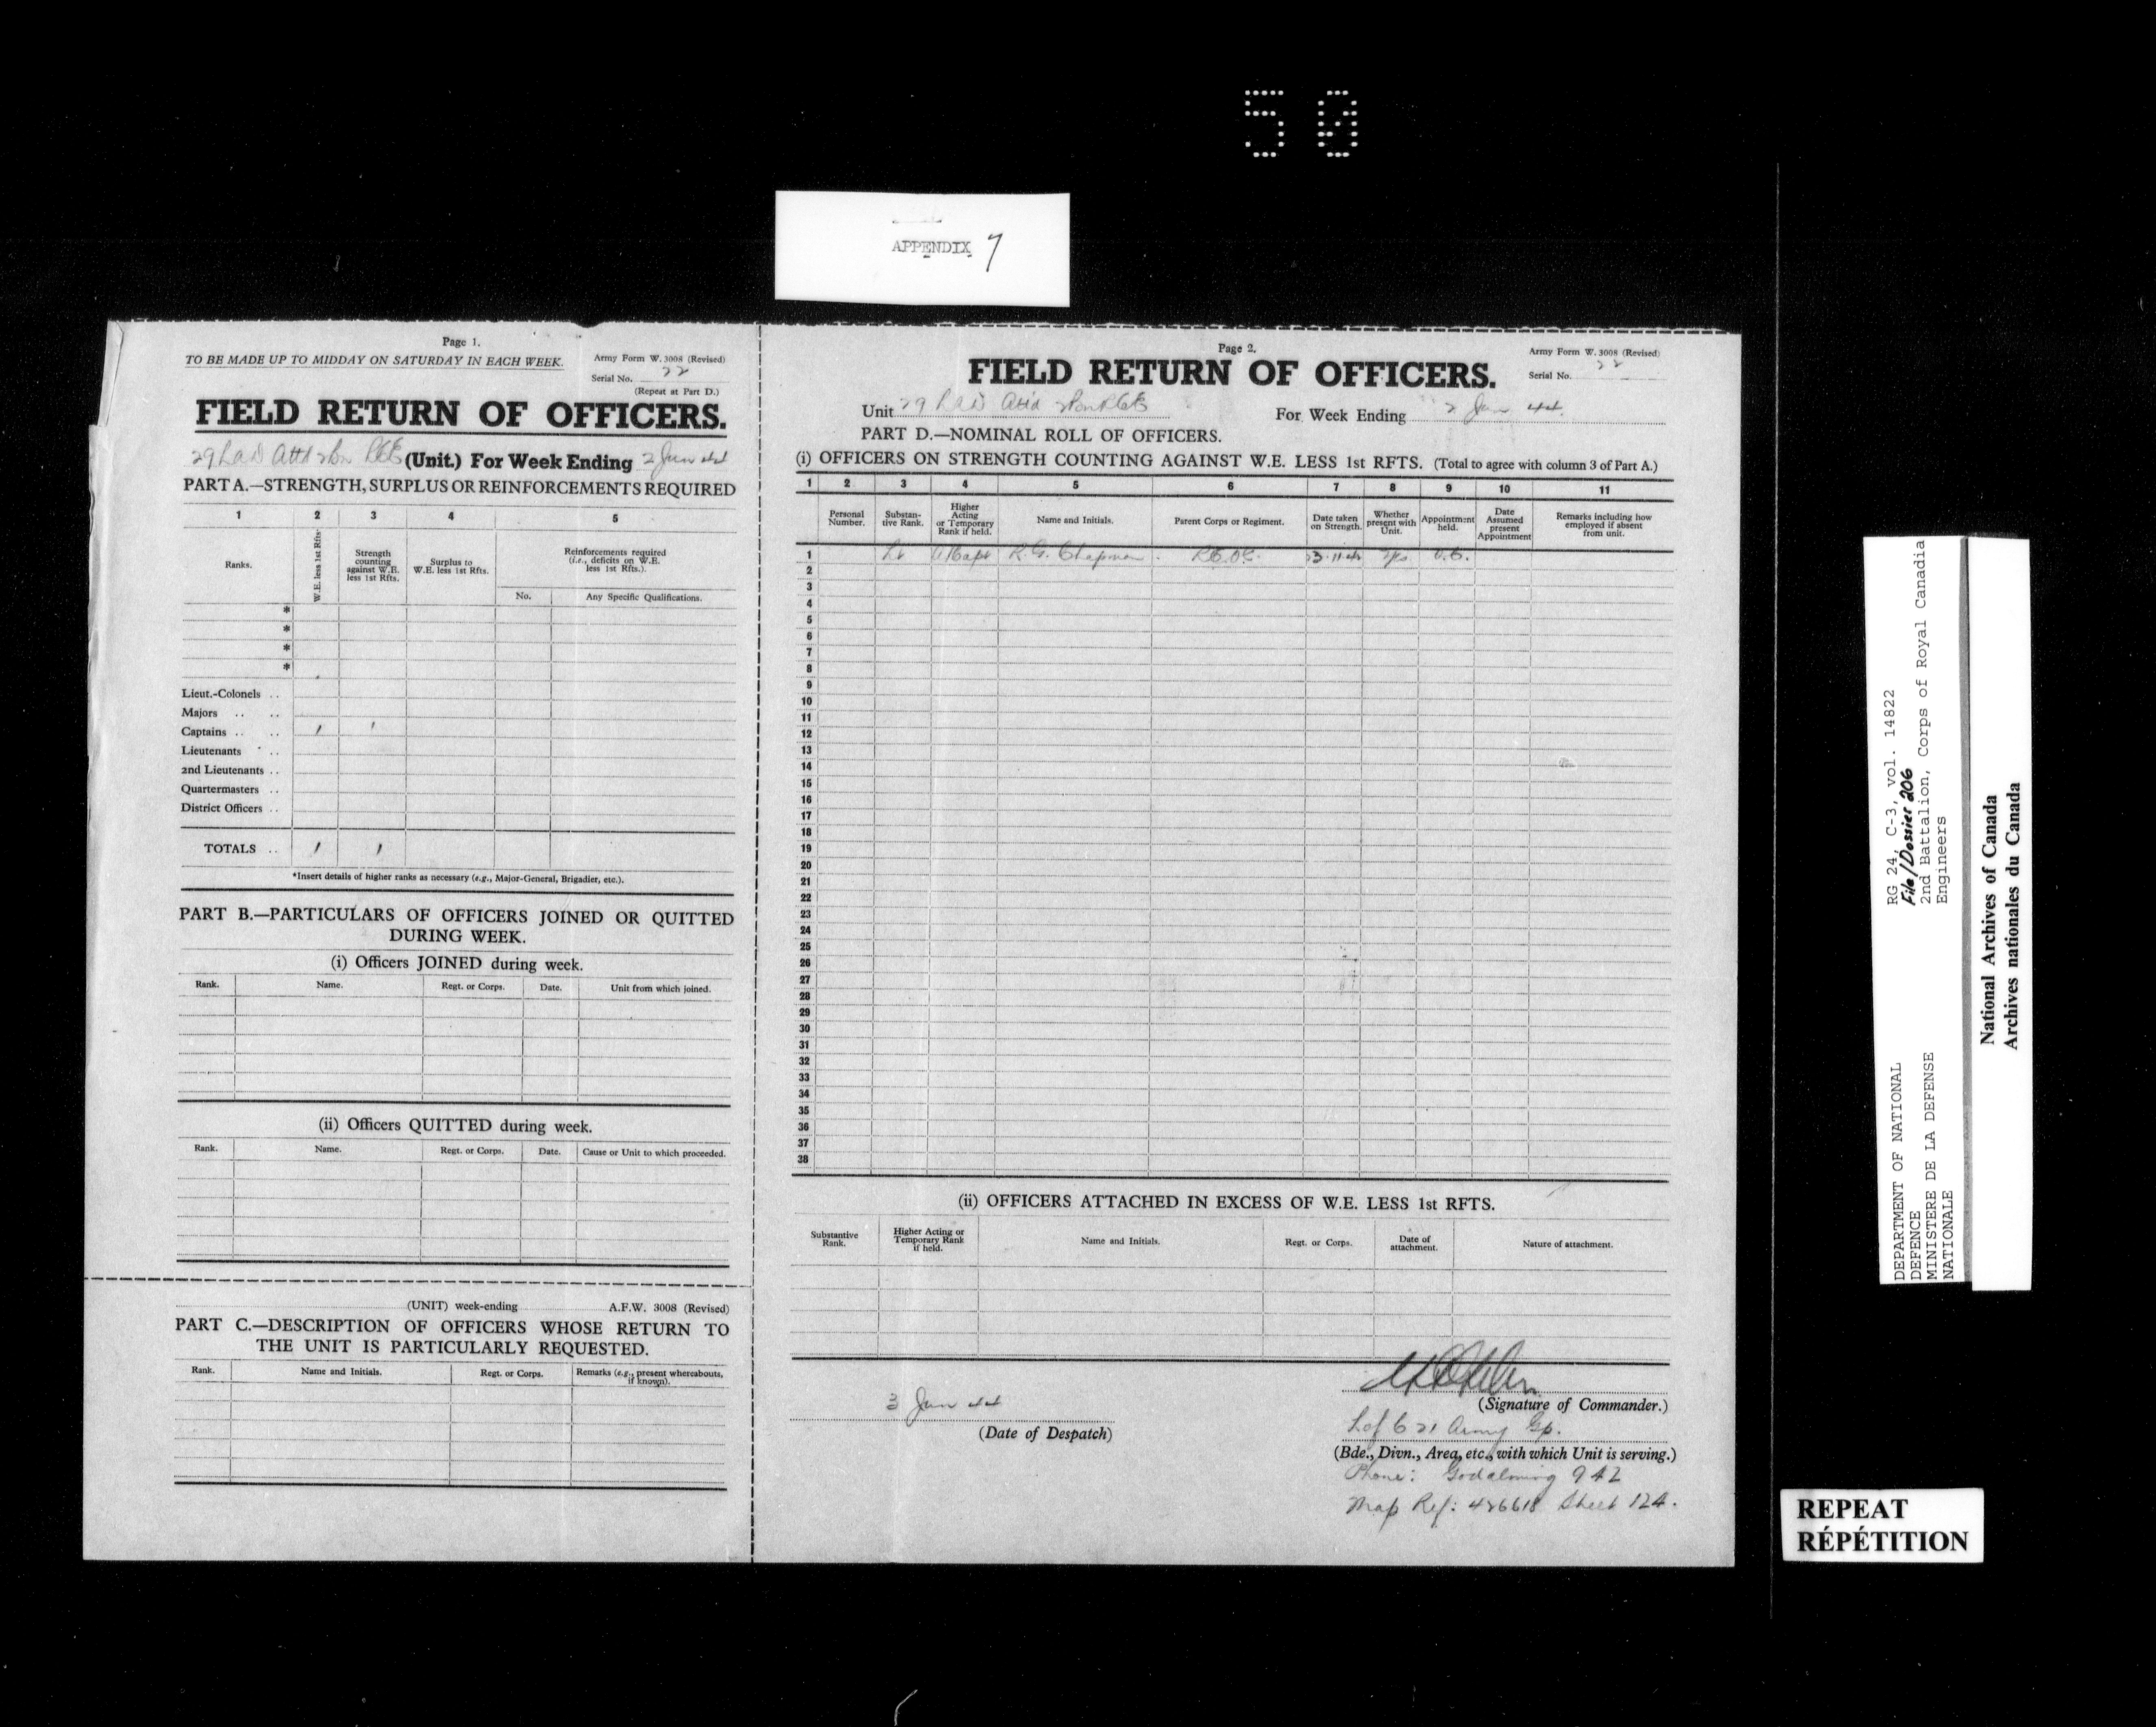 50
APPENDIX 7
Page 1.
TO BE MADE UP TO MIDDAY ON SATURDAY IN EACH WEEK.
Army Form W. 3008 (Revised)
Serial No. 22
(Repeat at Part D.)
FIELD RETURN OF OFFICERS.
29 LAD Attd 2 Bn RCE (Unit.) For Week Ending 2 Jan 44
PART A.—STRENGTH, SURPLUS OR REINFORCEMENTS REQUIRED
1 2 3 4 5
Ranks.
W.E. less 1st Rfts.
Strength counting against W.E. less 1st Rfts.
Surplus to W.E. less 1st Rfts.
Reinforcements required (i.e., deficits on W.E. less 1st Rfts.).
No. Any Specific Qualifications.
*
*
*
*
Lieut.-Colonels ..
Majors .. ..
Captains .. .. 1 1
Lieutenants ..
2nd Lieutenants ..
Quartermasters ..
District Officers ..
TOTALS .. 1 1
*Insert details of higher ranks as necessary (e.g., Major-General, Brigadier, etc.).
PART B.—PARTICULARS OF OFFICERS JOINED OR QUITTED
DURING WEEK.
(i) Officers JOINED during week.
Rank. Name. Regt. or Corps. Date. Unit from which joined.
(ii) Officers QUITTED during week.
Rank. Name. Regt. or Corps. Date. Cause or Unit to which proceeded.
(UNIT) week-ending A.F.W. 3008 (Revised)
PART C.—DESCRIPTION OF OFFICERS WHOSE RETURN TO
THE UNIT IS PARTICULARLY REQUESTED.
Rank. Name and Initials. Regt. or Corps. Remarks (e.g., present whereabouts, if known).
Page 2.
Army Form W. 3008 (Revised)
Serial No. 22
FIELD RETURN OF OFFICERS.
Unit 29 LAD Attd 2 Bn RCE For Week Ending 2 Jan 44.
PART D.—NOMINAL ROLL OF OFFICERS.
(i) OFFICERS ON STRENGTH COUNTING AGAINST W.E. LESS 1st RFTS. (Total to agree with column 3 of Part A.)
1 2 3 4 5 6 7 8 9 10 11
Personal Number.
Substantive Rank.
Higher Acting or Temporary Rank if held.
Name and Initials.
Parent Corps or Regiment.
Date taken on Strength.
Whether present with Unit.
Appointment held.
Date Assumed present Appointment
Remarks including how employed if absent from unit.
1 Lt A/Capt R.G. Chapman. R.C.O.C. Yes O.C.
2
3
4
5
6
7
8
9
10
11
12
13
14
15
16
17
18
19
20
21
22
23
24
25
26
27
28
29
30
31
32
33
34
35
36
37
38
(ii) OFFICERS ATTACHED IN EXCESS OF W.E. LESS 1st RFTS.
Substantive Rank.
Higher Acting or Temporary Rank if held.
Name and Initials.
Regt. or Corps.
Date of attachment.
Nature of attachment.
3 Jan 44
(Date of Despatch)
(Signature of Commander.)
L of C 21 Army Gp.
(Bde., Divn., Area, etc., with which Unit is serving.)
Phone: Godalming 942
Map Ref: 426618 Sheet 124.
RG 24, C-3, vol. 14822
File/Dossier 206
2nd Battalion, Corps of Royal Canadia
Engineers
DEPARTMENT OF NATIONAL
DEFENCE
MINISTERE DE LA DEFENSE
NATIONALE
National Archives of Canada
Archives nationales du Canada
REPEAT
RÉPÉTITION